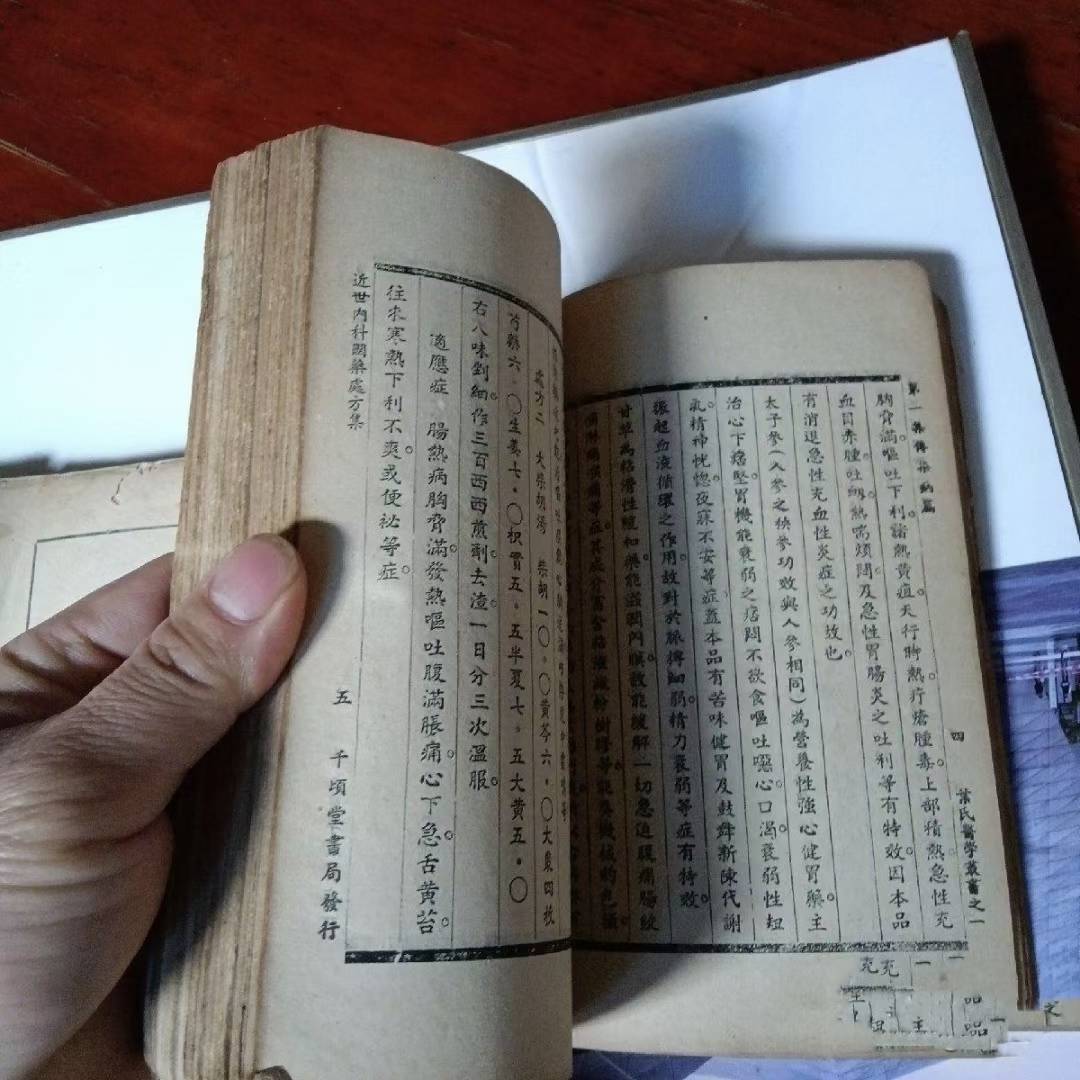 葉氏醫學叢書之一
四
胸脅滿。嘔吐下利。諸熱黃疸。天行時熱。疔瘡腫毒。上部積熱。急性充
血。目赤腫。吐衂。熱喘煩悶。及急性胃腸炎之吐利等有特效。因本品
有消退急性充血性炎症之功故也。
太子參(人參之秧參功效與人參相同)為營養性強心健胃藥。主
治心下痞堅。胃機能衰弱之痞悶不欲食。嘔吐噁心。口渴。衰弱性
氣。精神恍惚。夜寐不安等症。蓋本品有苦味健胃及鼓舞新陳代謝
振起血液循環之作用。故對於脈搏細弱。精力衰弱等症有特效。
甘草為粘滑性緩和藥。能滋潤內膜。故能緩解一切急迫腹痛。腸絞
處方二 大柴胡湯 柴胡一〇・〇黃芩六・〇大棗四枚
芍藥六・〇生姜七・〇枳實五・五半夏七・五大黃五・〇
右八味剉細。作三百西西煎劑。去渣。一日分三次溫服。
適應症 腸熱病胸脅滿。發熱嘔吐。腹滿脹痛。心下急。舌黃苔。
往來寒熱。下利不爽。或便祕等症。
近世內科國藥處方集
五
千頃堂書局發行